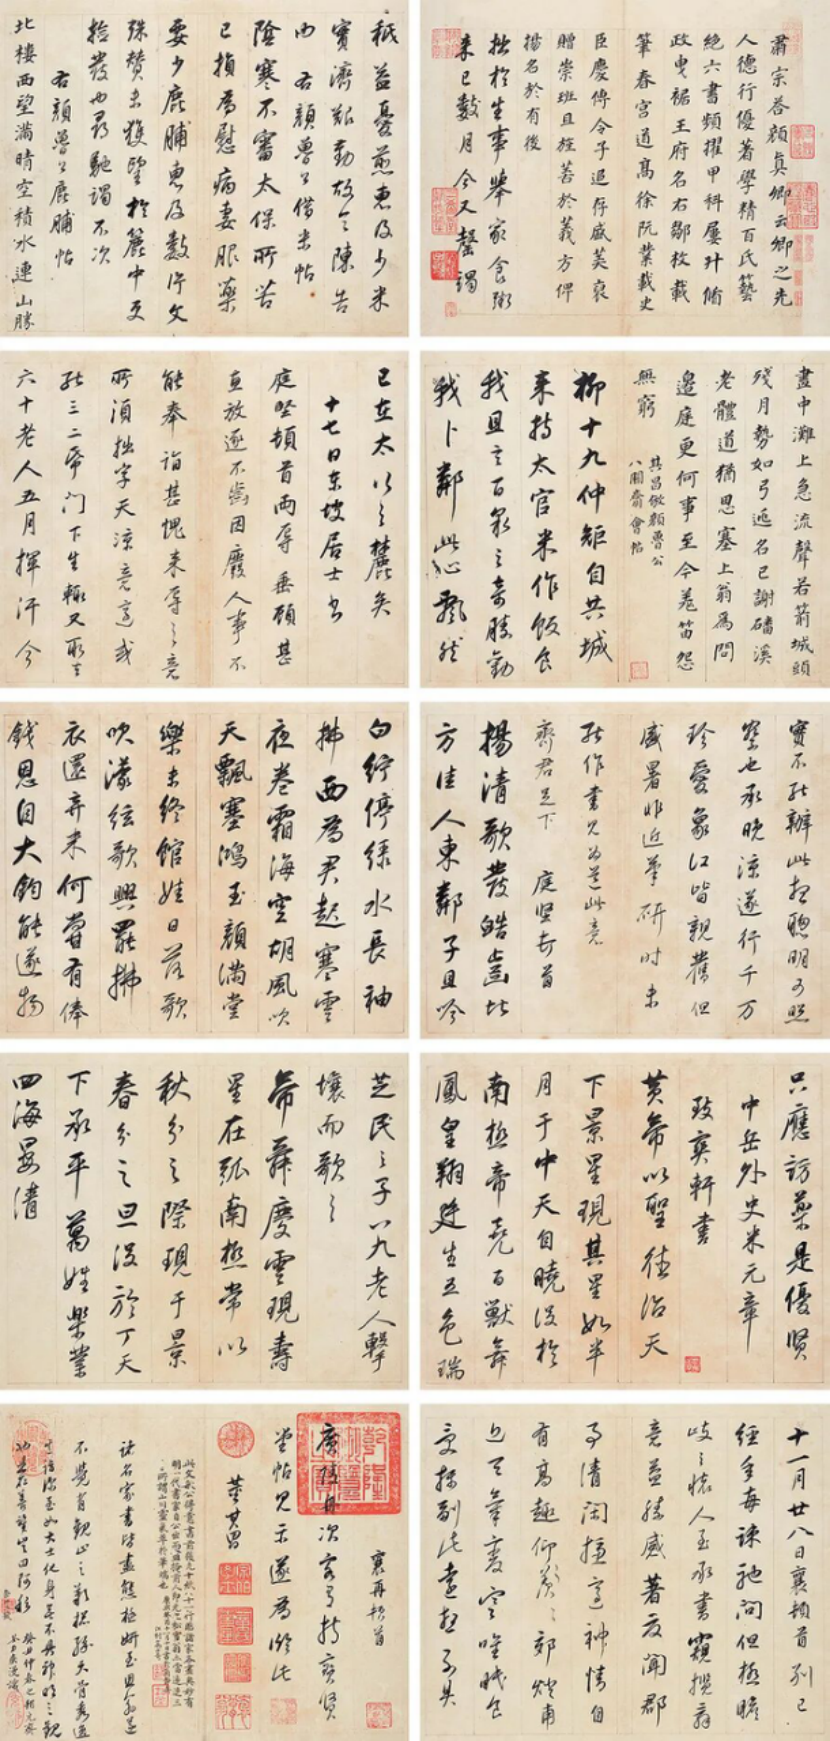 肅宗答顏真卿云卿之先
人德行優著學精百氏藝
絕六書頻擢甲科屢升循
政曳裾王府名右鄒枚載
筆春宮道高徐阮業載史
臣慶傳令子追存盛美褒
贈崇班且旌善於義方俾
揚名於有後
拙於生事舉家食粥
来已數月今又罄竭
秖益憂煎惠及少米
實濟艱勤故令陳告
也 右顏魯公借米帖
陰寒不審太保所苦
已損為慰病妻服藥
要少鹿脯惠及數片文
殊贊未獲望於麓中更
撿發也尋馳謁不次
右顏魯公鹿脯帖
北樓西望滿晴空積水連山勝
畫中灘上急流聲若箭城頭
残月勢如弓遞名已謝磻溪
老體道猶思塞上翁為問
邉庭更何事至今羌笛怨
無窮
其昌倣顏魯公
八關齋會帖
柳十九仲矩自共城
来持太官米作飯食
我且言百泉之奇勝勸
我卜鄰此心飄然
已在太行之麓矣
十七日東坡居士書
庭堅頓首兩辱垂顧甚
直放逐不齒因廢人事不
能奉詣甚愧来辱之意
所須拙字天凉意適或
能三二紙門下生輒又取去
六十老人五月揮汗今
實不能辦此想聰明可照
察也承晚凉遂行千万
珍愛象江皆親舊但
盛暑非近筆研時未
能作書見為道此意
齊君足下 庭堅頓首
揚清歌發皓齒北
方佳人東鄰子且吟
白紵停綠水長袖
拂面為君起寒雲
夜卷霜海空胡風吹
天飄塞鴻玉顏滿堂
樂未終館娃日落歌
吹濛絃歌興罷拂
衣還弃来何嘗有俸
錢恩自大鈞能遂物
只應訪藥是優賢
中岳外史米元章
致爽軒書
黃帝以聖德治天
下景星現其星如半
月于中天自曉没於
南極帝堯百獸舞
鳳皇翔筵生五色瑞
芝民之子八九老人擊
壤而歌之
帝舜慶雲現壽
星在弧南極常以
秋分之際現于景
春分之旦没於丁天
下承平萬姓樂業
四海晏清
十一月廿八日襄頓首別已
經年每疎馳問但極瞻
之懷人至承書竊
意益勝盛著夜聞郡
事清閑擁適神情自
有高趣仰羨
之至 寒唯眠食
襄再頓首
廣陵舟次客有持寶賢
堂帖見示遂為臨此
董其昌
諸名家書皆盡態極妍
不覺